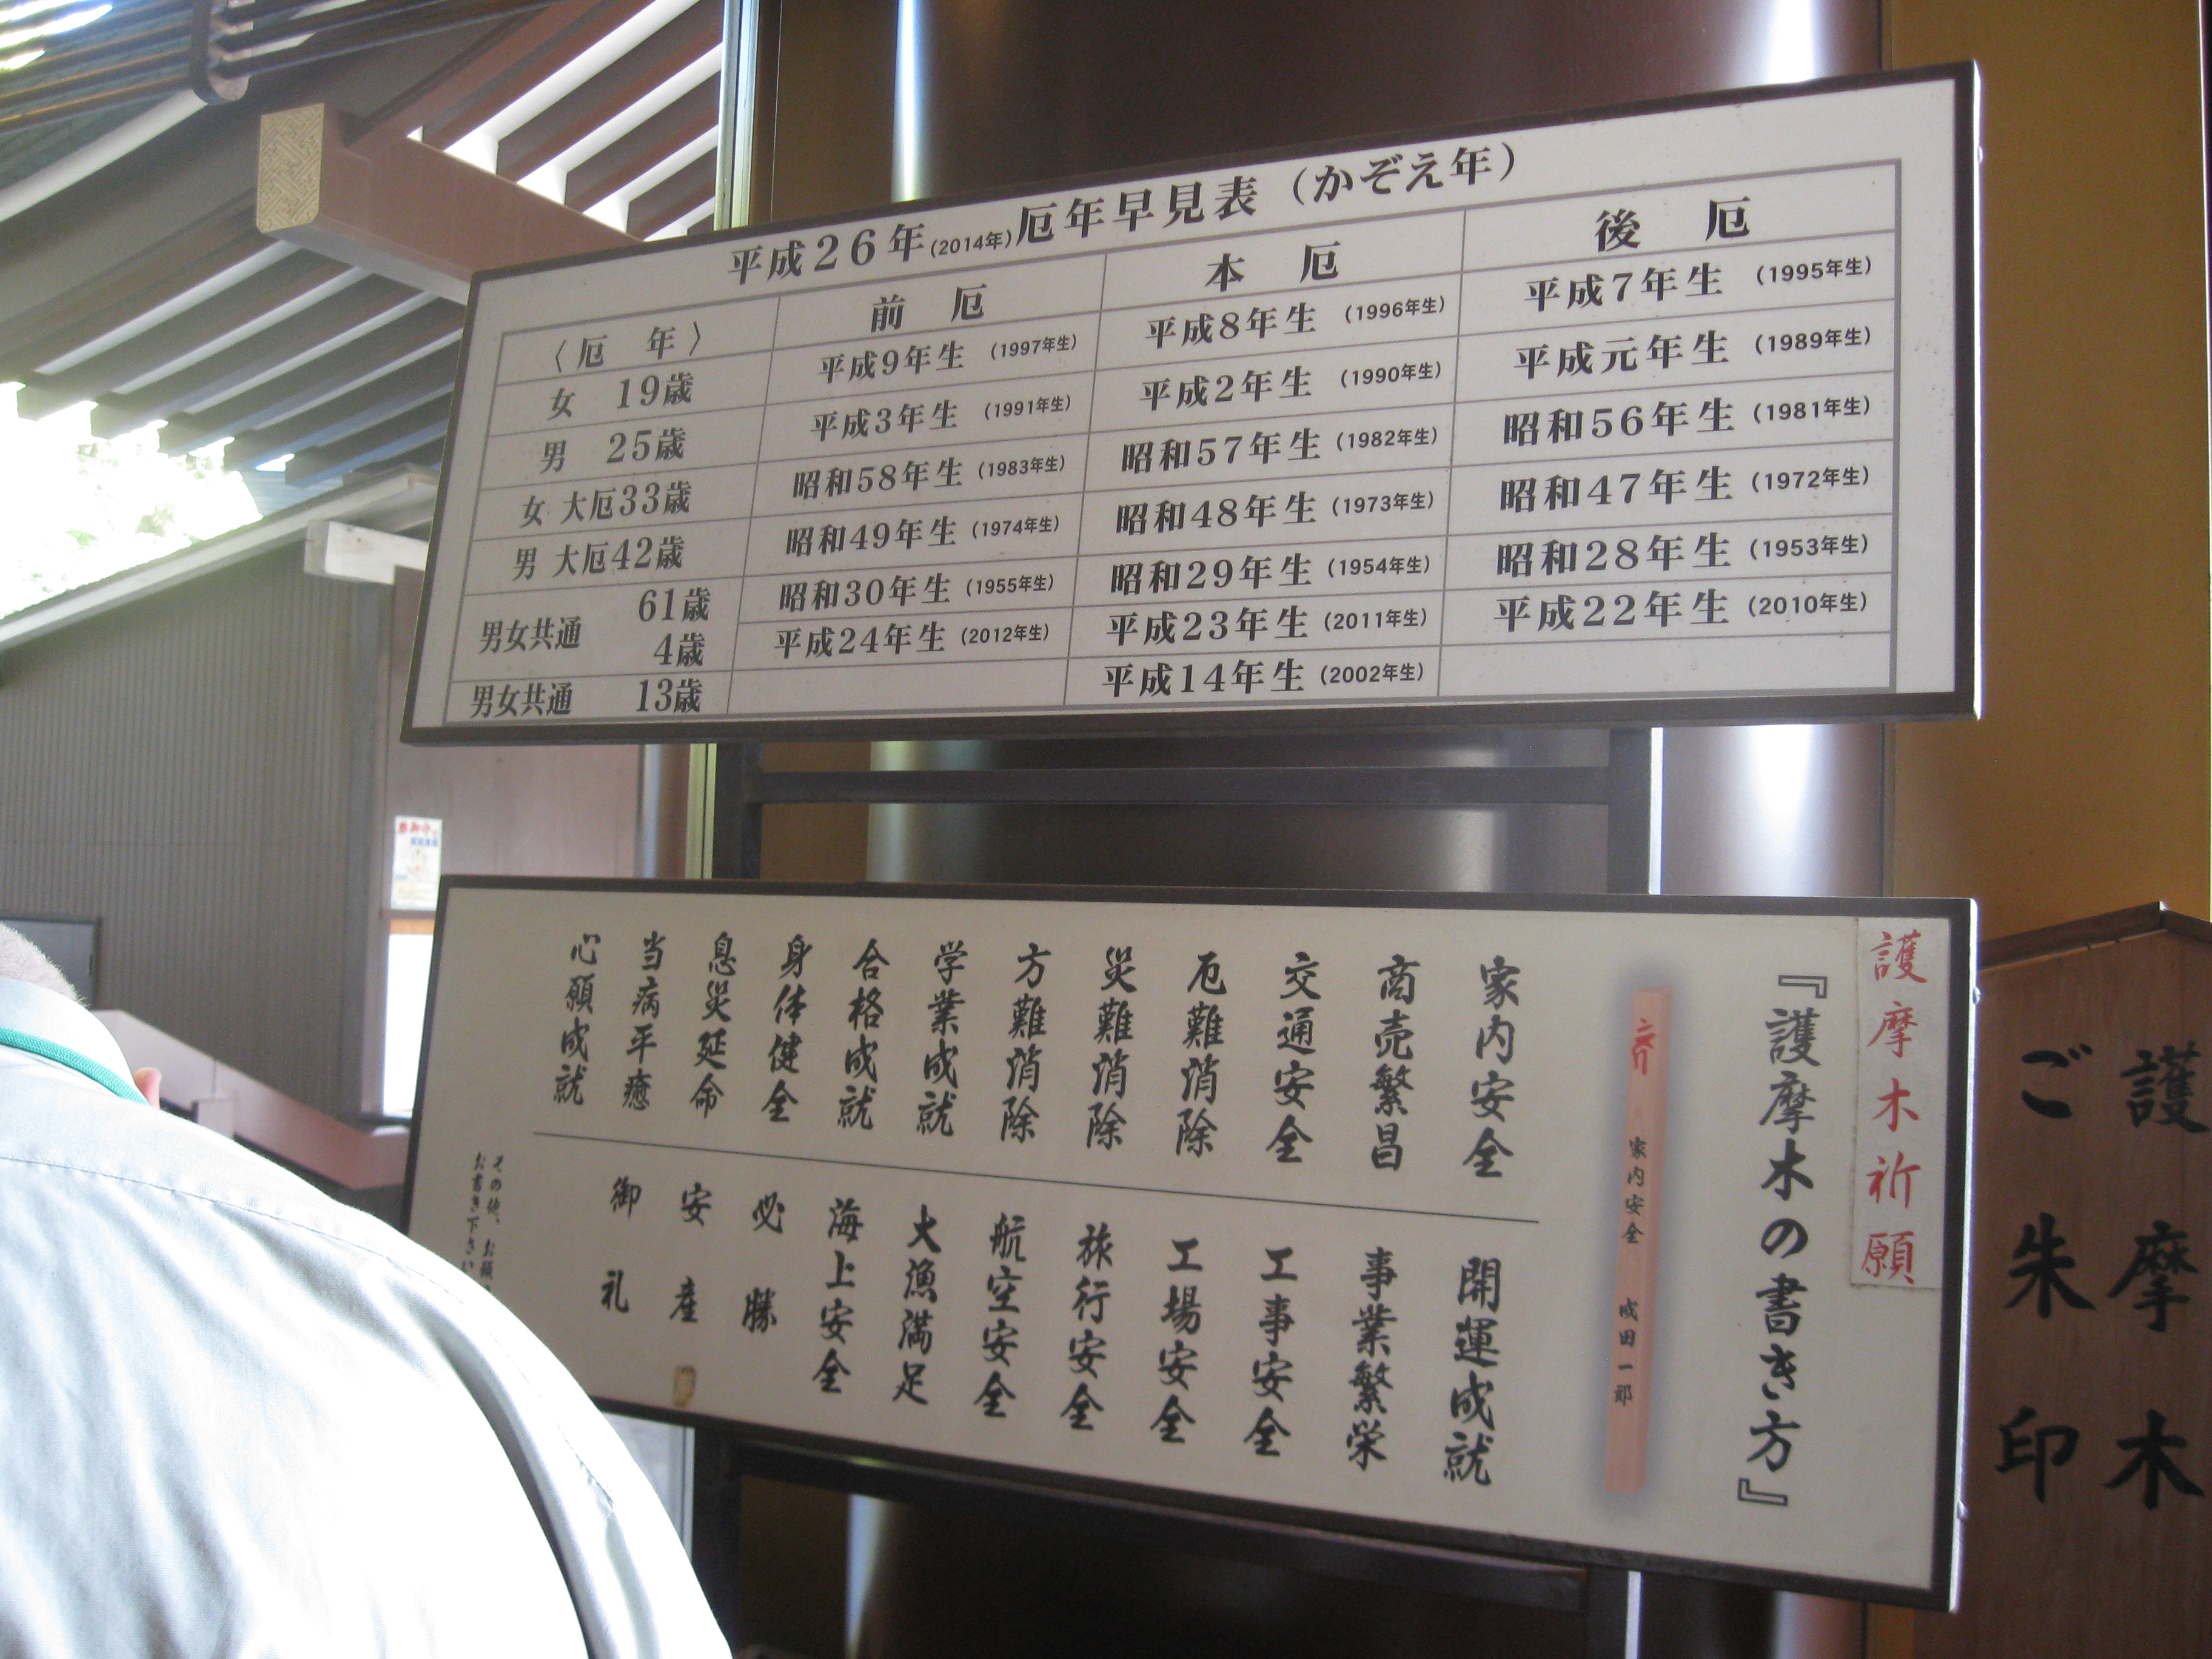 平成26年(2014年)厄年早見表（かぞえ年）
〈厄 年〉 前 厄 本 厄 後 厄
女 19歳 平成9年生 (1997年生) 平成8年生 (1996年生) 平成7年生 (1995年生)
男 25歳 平成3年生 (1991年生) 平成2年生 (1990年生) 平成元年生 (1989年生)
女 大厄33歳 昭和58年生 (1983年生) 昭和57年生 (1982年生) 昭和56年生 (1981年生)
男 大厄42歳 昭和49年生 (1974年生) 昭和48年生 (1973年生) 昭和47年生 (1972年生)
男女共通 61歳 昭和30年生 (1955年生) 昭和29年生 (1954年生) 昭和28年生 (1953年生)
4歳 平成24年生 (2012年生) 平成23年生 (2011年生) 平成22年生 (2010年生)
男女共通 13歳 平成14年生 (2002年生)
護摩木祈願
『護摩木の書き方』
家内安全 成田一郎
家内安全
商売繁昌
交通安全
厄難消除
災難消除
方難消除
学業成就
合格成就
身体健全
息災延命
当病平癒
心願成就
開運成就
事業繁栄
工事安全
工場安全
旅行安全
航空安全
大漁満足
海上安全
必勝
安産
御礼
その他、お願
お書き下さい
護摩木
ご朱印